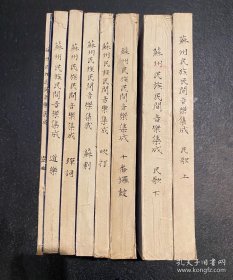 蘇州民族民間音樂集成 民歌 上
蘇州民族民間音樂集成 民歌 下
蘇州民族民間音樂集成 十番鑼鼓
蘇州民族民間音樂集成 吹打
蘇州民族民間音樂集成 蘇劇
蘇州民族民間音樂集成 彈詞
蘇州民族民間音樂集成 道樂